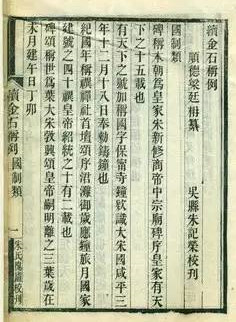 續金石稱例
順德梁廷枏纂 吳縣朱記榮校刊
國制類
碑稱本朝爲皇家宋新修商帝中宗廟碑序皇家有天
下之十五載也
有天下之號加稱國字保甯寺鐘款識大宋國咸平三
年十二月十八日奉勅鑄鐘也
紀國年稱禩禪社首壇頌序君灘御歲應鐘旅月國家
建號之四十禩皇帝紹統之十有二載也
碑頌稱世爲葉大宋敦興頌皇帝嗣明離之三葉歲在
未月建午日丁卯
續金石稱例 國制類 一 朱氏槐廬校刊